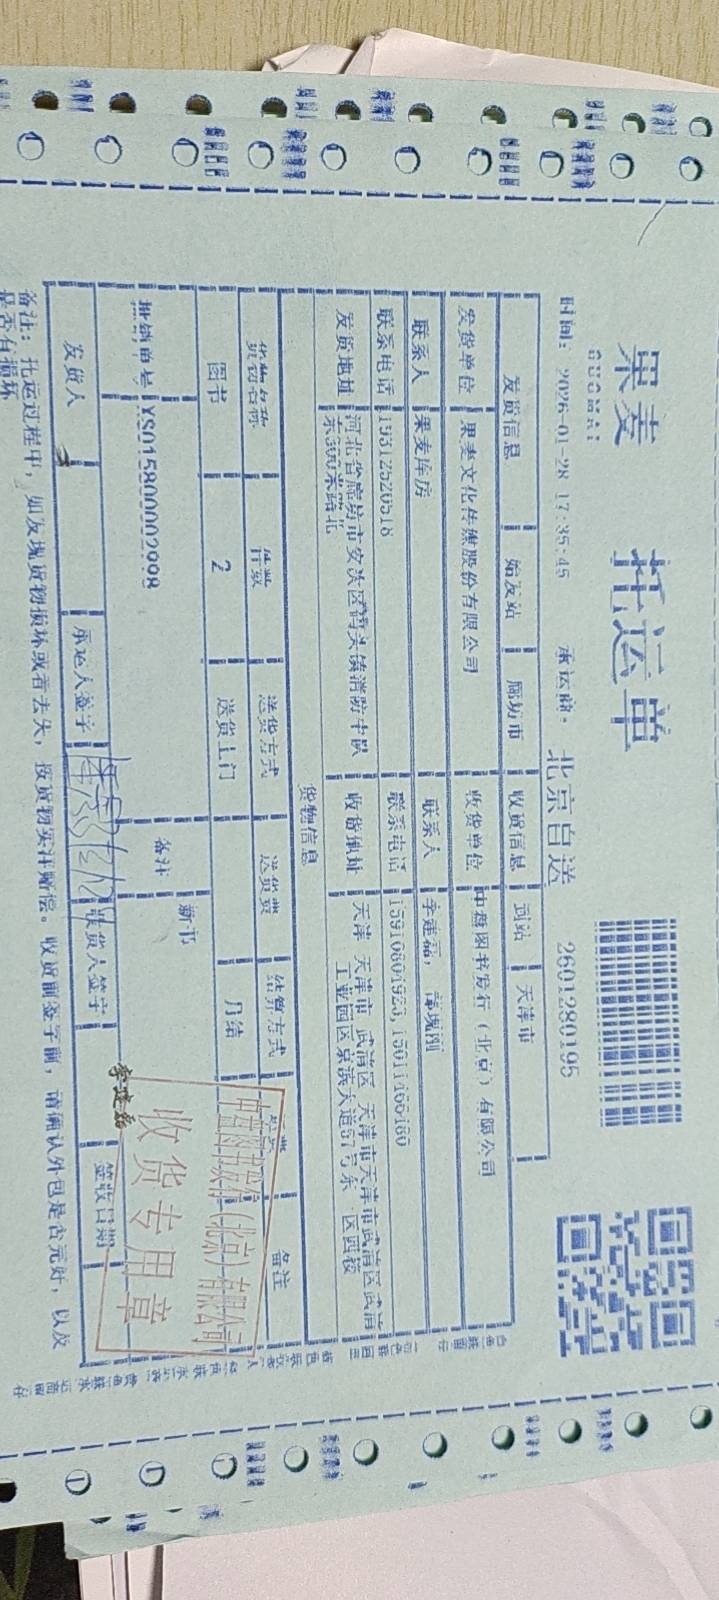 果麦 托运单
GUOMAI
时间: 2026-01-28 17:35:45 承运商: 北京自送 2601280195
发货信息 始发站 廊坊市 收货信息 到站 天津市
发货单位 果麦文化传媒股份有限公司 收货单位 中盘图书发行（北京）有限公司
联系人 果麦库房 联系人 李建磊,
联系电话 19312520518 联系电话
发货地址 河北省廊坊市安次区码头镇消防中队 收货地址 天津 天津市 武清区 天津市天津市武清区武清
东300米路北 工业园区京滨大道57号东
货物信息
货物名称 件数 送货方式 送货费 结算方式 备注
图书 2 送货上门 月结
批销单号 XS015800002998 备注 新书
发货人 承运人签字 收货人签字 李建磊 签收日期
中盘图书发行（北京）有限公司
收货专用章
备注: 托运过程中, 如发现货物损坏或者丢失, 按货物实洋赔偿。收货前签字前, 请确认外包是否完好, 以及
是否有损坏